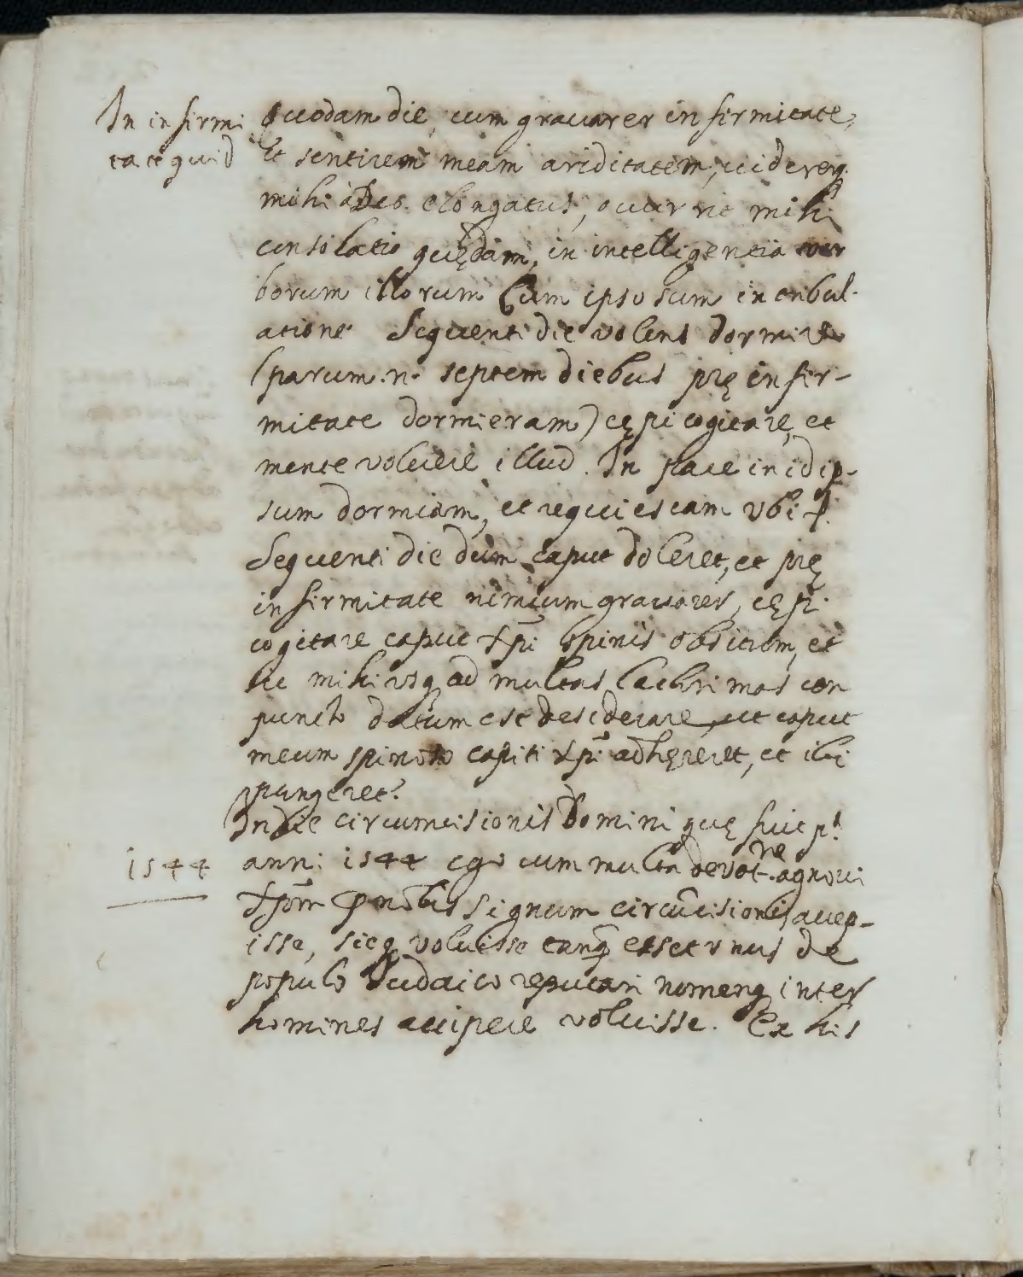 In infirmi
tate quid
Quodam die, cum grauarer infirmitate,
Et sentirem meam ariditatem, uidererq.
mihi à Deo elongatus, occurrit mihi
consolatio quędam, in intelligentia ver
borum illorum Cum ipso sum in tribul-
atione Sequenti die volens dormire
(parum .n. septem diebus prę infir-
mitate dormieram) cępi cogitare, et
mente voluere illud. In pace in idip-
sum dormiam, et requiescam vbi
Sequenti die dum caput doleret, et prę
infirmitate nimium grauarer, cępi
cogitare caput Xpi spinis obsitum, et
sic mihi vsq ad multas lachrimas con
puncto datum est desiderare, ut caput
meum spinoso capiti Xpi adhęreret, et ibi
pungeret.
In die circumcisionis Domini quę fuit p.ª
1544
anni 1544 ego cum multa deuot.ne agnoui
Xpm p nobis signum circūcisionis accep-
isse, sicq voluisse tanq esset vnus de
populo Iudaico reputari nomenq inter
homines accipere voluisse. Ex his